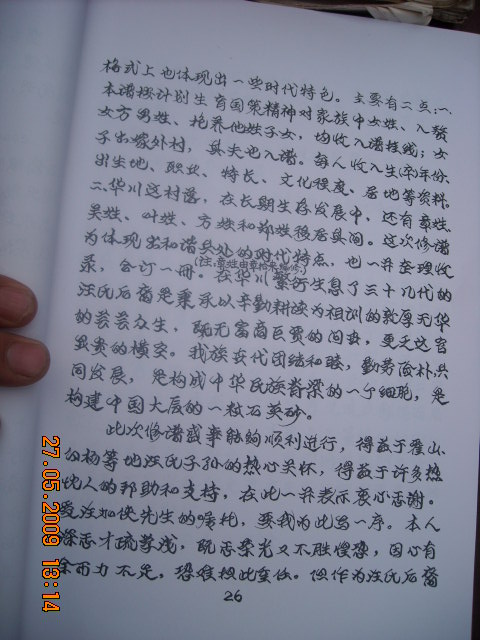 格式上也体现出一些时代特色。主要有二点:一、
本谱按计划生育国策精神对家族中女姓、入赘
女方男姓、抱养他姓子女,均收入谱挂线;女
子出嫁外村,其夫也入谱。每人收入生(卒)年份、
出生地、职业、特长、文化程度、居地等资料。
二、华川这村落,在长期生存发展中,还有章姓、
吴姓、叶姓、方姓和郑姓移居其间。这次修谱
为体现出和谐共处的时代特点,也一并整理收
(注:章姓由章柏来编修)
录,合订一册。在华川繁衍生息了三十几代的
汪氏后裔是秉承以辛勤耕读为祖训的敦厚无华
的芸芸众生,既无富商巨贾的闪世,更无达官
显贵的横空。我族世代团结和睦,勤劳俭朴共
同发展,是构成中华民族脊梁的一个细胞,是
构建中国大厦的一粒石英砂。
此次修谱盛事能够顺利进行,得益于霍山、
杨等地汪氏子孙的热心关怀,得益于许多热
心人的邦助和支持,在此一并表示衷心志谢。
爰汪如侠先生的嘱托,要我为此写一序。本人
深志才疏学浅,既志荣光又不胜惶恐,因心有
余而力不足,恐难担此重任。但作为汪氏后裔
26
27.05.2009 13:14